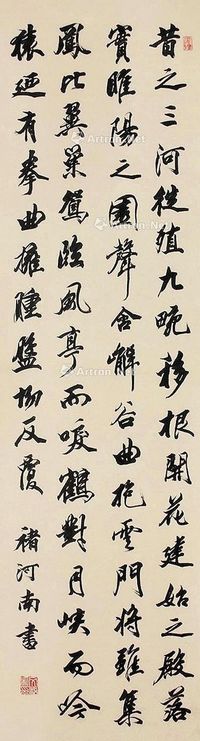 昔之三河徙殖九畹移根開花建始之殿落
實睢陽之園聲含解谷曲抱雲門將雛集
鳳比翼巢鴛臨風亭而唳鶴對月峽而吟
猿迺有拳曲擁腫盤坳反覆
褚河南書
Artron.Net